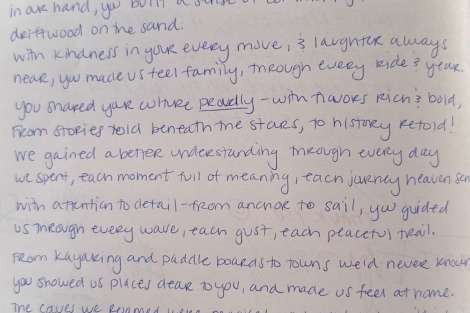 in one hand, you built a sense of
driftwood on the sand.
With kindness in your every move, & laughter always
near, you made us feel family, through every ride & year.
You shared your culture proudly - with flavors rich & bold,
From stories told beneath the stars, to history retold!
We gained a better understanding through every day
we spent, each moment full of meaning, each journey heaven sen
With attention to detail - from anchor to sail, you guided
us through every wave, each gust, each peaceful trail.
From kayaking and paddle boards to towns we'd never known
you showed us places dear to you, and made us feel at home.
The caves we roamed were